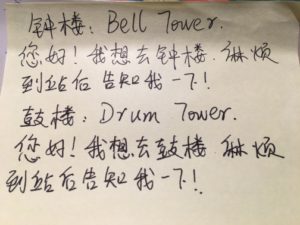 钟楼: Bell Tower.
您好!我想去钟楼 麻烦
到站后 告知我一下!
鼓楼: Drum Tower.
您好!我想去鼓楼 麻烦
到站后告知我一下!